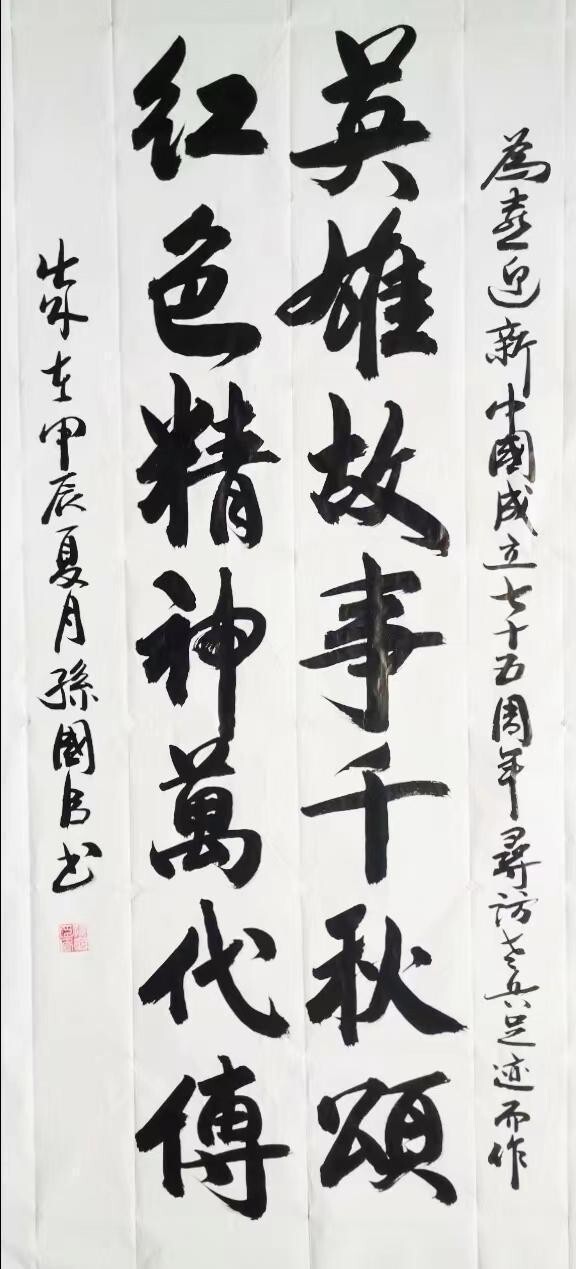 為喜迎新中國成立七十五周年尋訪老兵足迹而作
英雄故事千秋頌
红色精神萬代傳
岁在甲辰夏月孫國書